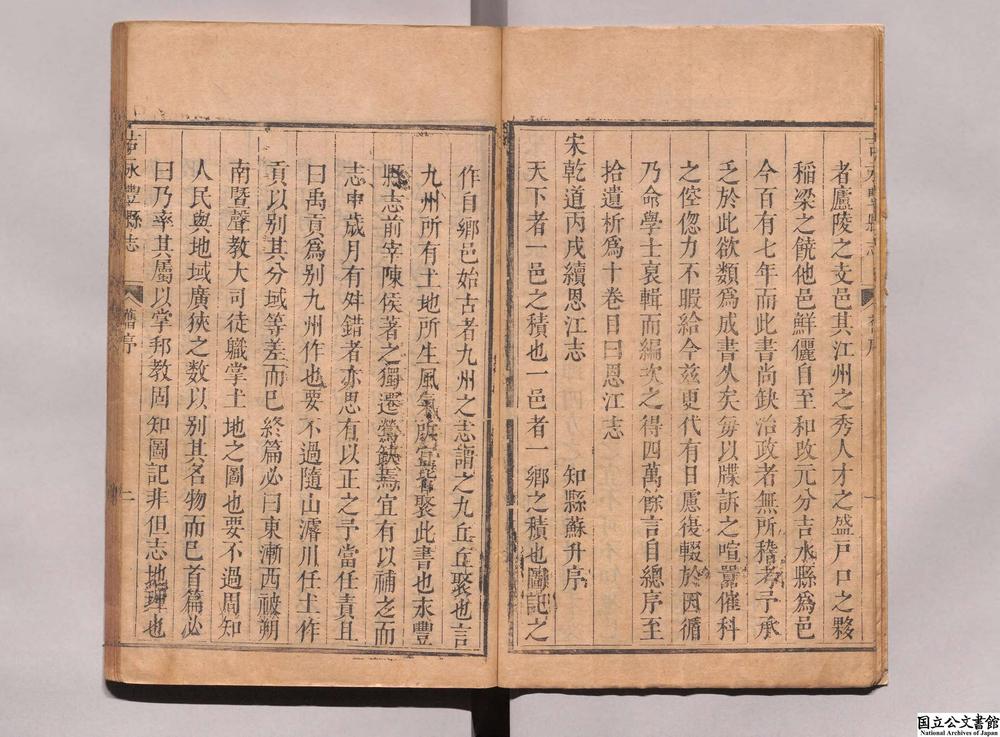 者廬陵之支邑其江州之秀人才之盛戸口之夥
稻梁之饒他邑鮮儷自至和改元分吉水縣爲邑
今百有七年而此書尚缺治政者無所稽考予承
乏於此欲類爲成書久矣毎以牒訴之喧囂催科
之倥偬力不暇給今兹更代有日慮復輟於因循
乃命學士裒輯而編次之得四萬餘言自總序至
拾遺析爲十卷目曰恩江志
宋乾道丙戌續恩江志 知縣蘇升序
天下者一邑之積也一邑者一鄉之積也圖記之
作自鄉邑始古者九州之志謂之九丘丘聚也言
九州所有土地所生風氣所宜皆聚此書也永豐
縣志前宰陳侯著之獨遷鶯缺焉宜有以補之而
志中歲月有舛錯者亦思有以正之予當任責且
曰禹貢爲别九州作也要不過隨山濬川任土作
貢以别其分域等差而已終篇必曰東漸西被朔
南暨聲教大司徒職掌土地之圖也要不過周知
人民與地域廣狹之数以别其名物而已首篇必
曰乃率其屬以掌邦教周知圖記非但志地理也
永豐縣志
舊序
二
国立公文書館
National Archives of Japan